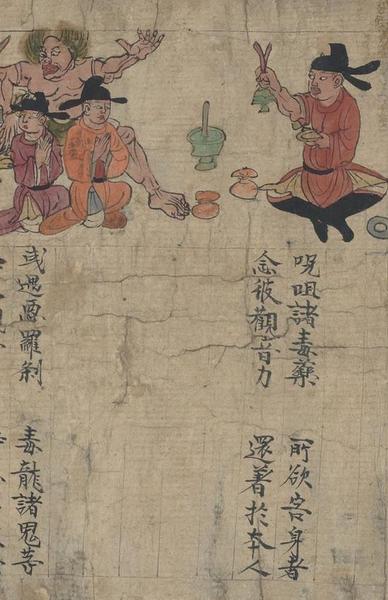 呪咀諸毒藥 所欲害身者
念彼觀音力 還著於夲人
或遇惡羅刹 毒龍諸鬼等